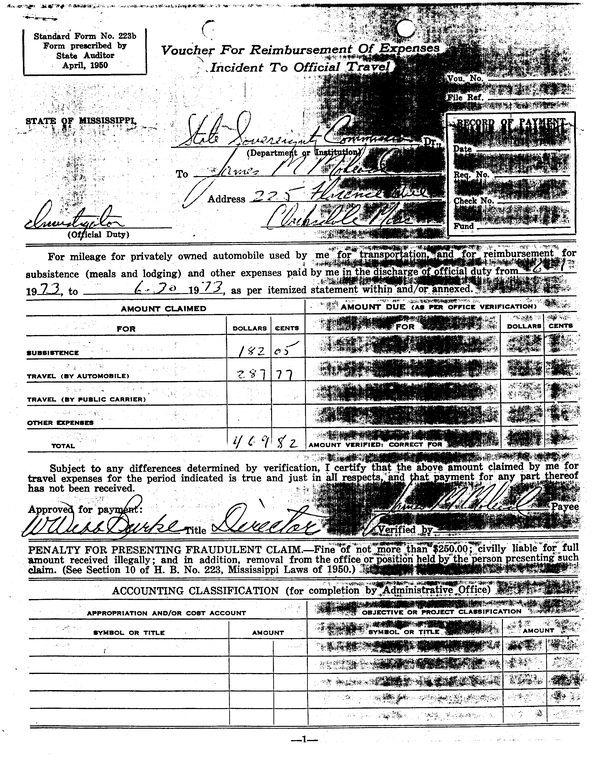 Standard Form No. 223b
Form prescribed by
State Auditor
April, 1950
Voucher For Reimbursement Of Expenses
Incident To Official Travel
Vou. No.
File Ref.
STATE OF MISSISSIPPI,
State Sovereignty Commission Dr.,
(Department or Institution)
RECORD OF PAYMENT
Date
Req. No.
Check No.
Fund
To James M
Address 225 Florence
Clarksdale Miss
Investigator
(Official Duty)
For mileage for privately owned automobile used by me for transportation, and for reimbursement for
subsistence (meals and lodging) and other expenses paid by me in the discharge of official duty from 6-1
1973, to 6-30 1973, as per itemized statement within and/or annexed.
AMOUNT CLAIMED
AMOUNT DUE (AS PER OFFICE VERIFICATION)
FOR DOLLARS CENTS FOR DOLLARS CENTS
SUBSISTENCE 182 05
TRAVEL (BY AUTOMOBILE) 287 77
TRAVEL (BY PUBLIC CARRIER)
OTHER EXPENSES
TOTAL 469 82 AMOUNT VERIFIED: CORRECT FOR
Subject to any differences determined by verification, I certify that the above amount claimed by me for
travel expenses for the period indicated is true and just in all respects, and that payment for any part thereof
has not been received.
James M Payee
Approved for payment:
W Webb Burke Title Director Verified by
PENALTY FOR PRESENTING FRAUDULENT CLAIM.—Fine of not more than $250.00; civilly liable for full
amount received illegally; and in addition, removal from the office or position held by the person presenting such
claim. (See Section 10 of H. B. No. 223, Mississippi Laws of 1950.)
ACCOUNTING CLASSIFICATION (for completion by Administrative Office)
APPROPRIATION AND/OR COST ACCOUNT OBJECTIVE OR PROJECT CLASSIFICATION
SYMBOL OR TITLE AMOUNT SYMBOL OR TITLE AMOUNT
—1—